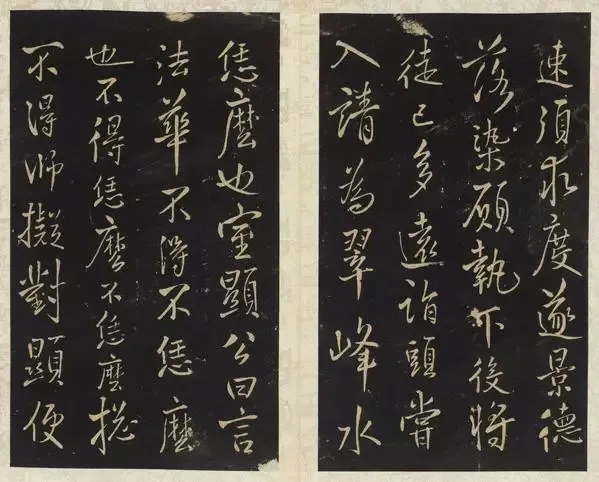 速須求度遂景德
落染願執後將
徒已多遠詣頭嘗
入請為翠峰水
恁麼也室顯公曰言
法華不得不恁麼
也不得恁麼不恁麼揔
不得師擬對顯便